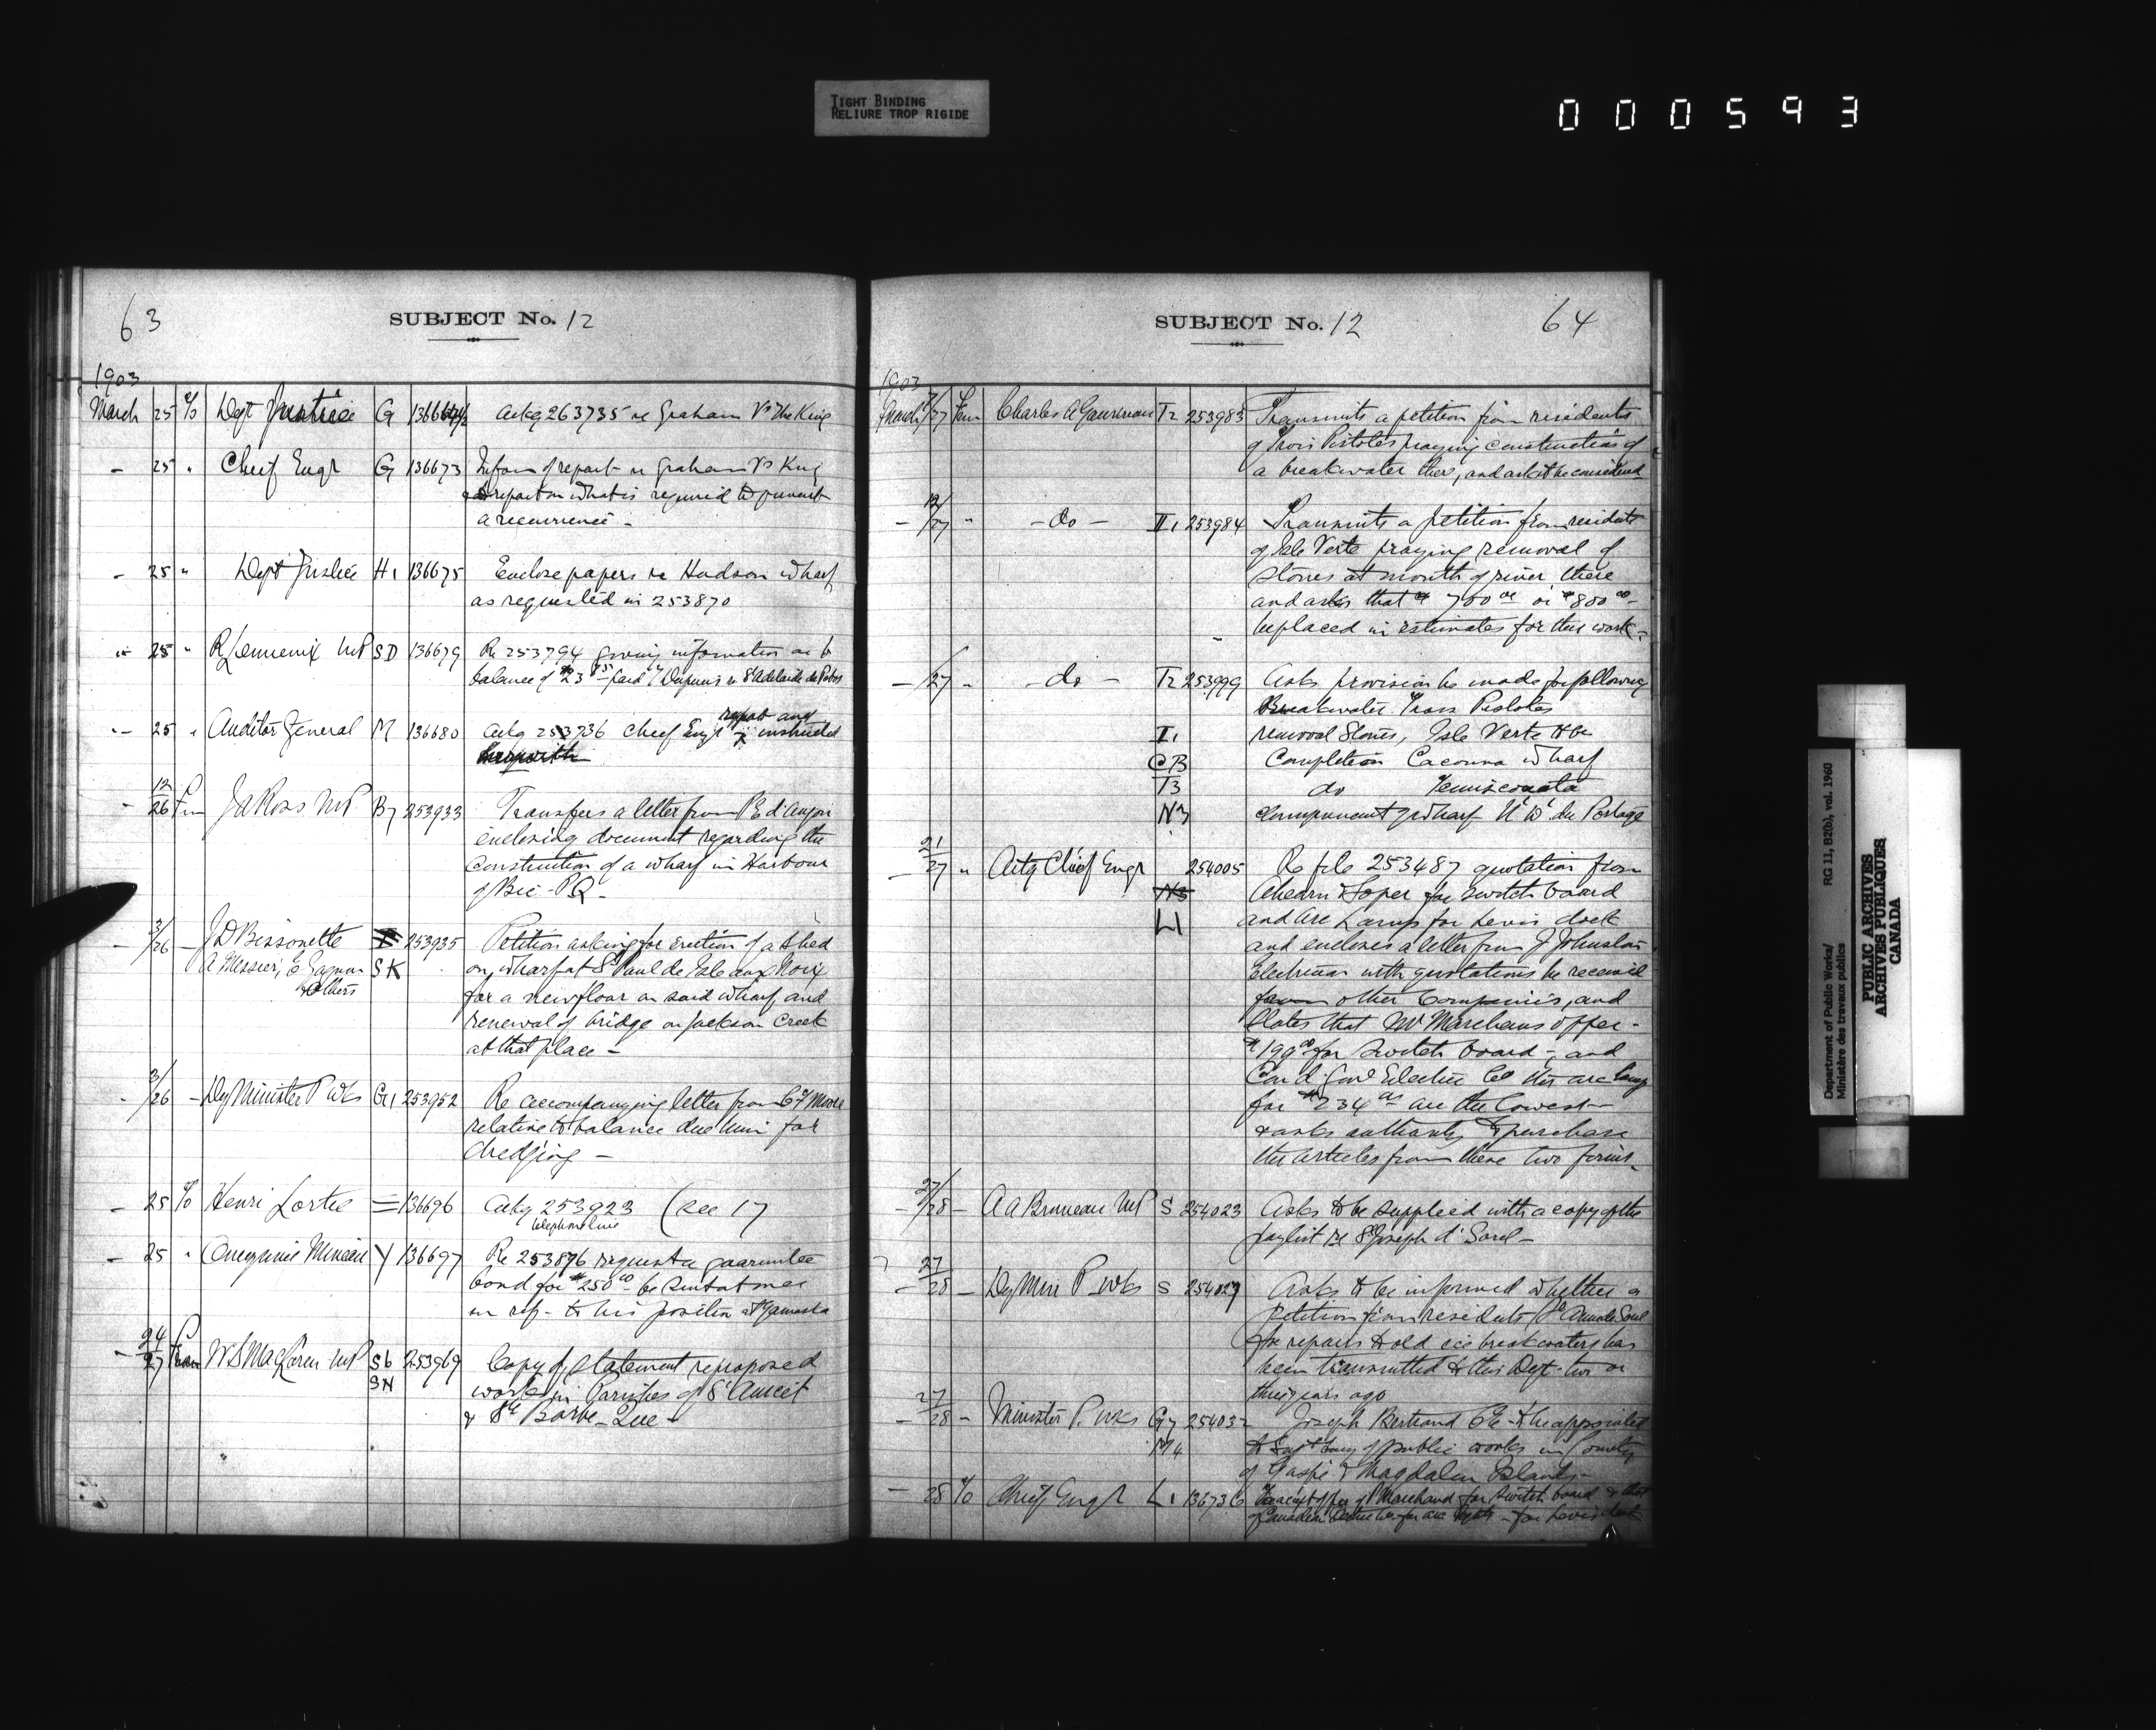 TIGHT BINDING
RELIURE TROP RIGIDE
000593
63
SUBJECT No. 12
1903
March 25 Dept Justice G
Ackg 263735 re Graham Vs The King
25 " Chief Engr G 136673 Inform of report re Graham Vs King
& report on what is required to prevent
a recurrence -
25 " Dept Justice H1 136675 Enclose papers re Hudson wharf
as requested in 253870
25 " R Lemieux MP SD 136679 Re 253794 giving information as to
balance of
25 " Auditor General M 136680 Ackg 253736 Chief Engr instructed
report and
12/26 Fm J A Ross MP B7 253933 Transfers a letter from P E d'Anjou
enclosing document regarding the
construction of a wharf in Harbour
of Bic - P.Q -
3/26 - J D Bissonette 253935 Petition asking for erection of a shed
A Messier, E Gagnon SK on wharf at St Paul de Isle aux Noix
& Others for a new floor on said wharf, and
renewal of bridge on Jackson Creek
at that place -
3/26 - Dy Minister P Wks G1 253952 Re accompanying letter from Moore
relative to balance due him for
dredging -
25 Henri Lortie = 136696 Ackg 253923 (see 17
telephone line
25 " Mineau Y 136697 Re 253896 request a guarantee
bond for $250 00 - be sent at once
in ref - to his position at Yamaska
24/27 From W S MacLaren MP S6 253969 Copy of statement re proposed
SN works in Parishes of St Anicet
& Ste Barbe - Que -
SUBJECT No. 12
64
1903
March /27 From Charles A Gauvreau T2 253983 Transmits a petition from residents
of Trois Pistoles praying construction of
a breakwater there, and ask it be considered
12/27 " - do - I1 253984 Transmits a petition from residents
of Isle Verte praying removal of
stones at mouth of river there
and asks that $700 00 or $800 00 -
be placed in estimates for this work -
- /27 " - do - T2 253999 Asks provision be made for following
Breakwater Trois Pistoles
I1 removal Stones, Isle Verte Hbr
CB Completion Cacouna Wharf
T3 do Temiscouata
N3 wharf N. D. du Portage
21/27 " Actg Chief Engr 254005 Re file 253487 quotation from
N3 Ahearn & Soper for switch board
L1 and arc Lamps for Levis dock
and encloses a letter from J Johnston
Electrician with quotations he received
from other Companies, and
States that Mr Marchand's offer -
$199 00 for switch board - and
Can d. Genl Electric Co this arc lamp
for $234 are the lowest -
& asks authority to purchase
the articles from these two firms -
27/28 - A A Bruneau MP S 254023 Asks to be supplied with a copy of the
paylist re St Joseph d' Sorel -
27/28 - Dy Min P Wks S 254029 Asks to be informed whether a
petition from residents Ste Anne de Sorel
for repairs to old ice breakwaters has
been transmitted to this Dept two or
three years ago
27/28 - Minister P. Wks G7 254032 Joseph Bertrand CE - to be appointed
M4 of public works in County
of Gaspé & Magdalen Islands -
- 28 Chief Engr L1 136736 To accept offer of Marchand for switch board & that
of Canadian for arc - for Levis dock
Department of Public Works/ RG 11, B2(b), vol. 1960
Ministère des travaux publics
PUBLIC ARCHIVES
ARCHIVES PUBLIQUES
CANADA